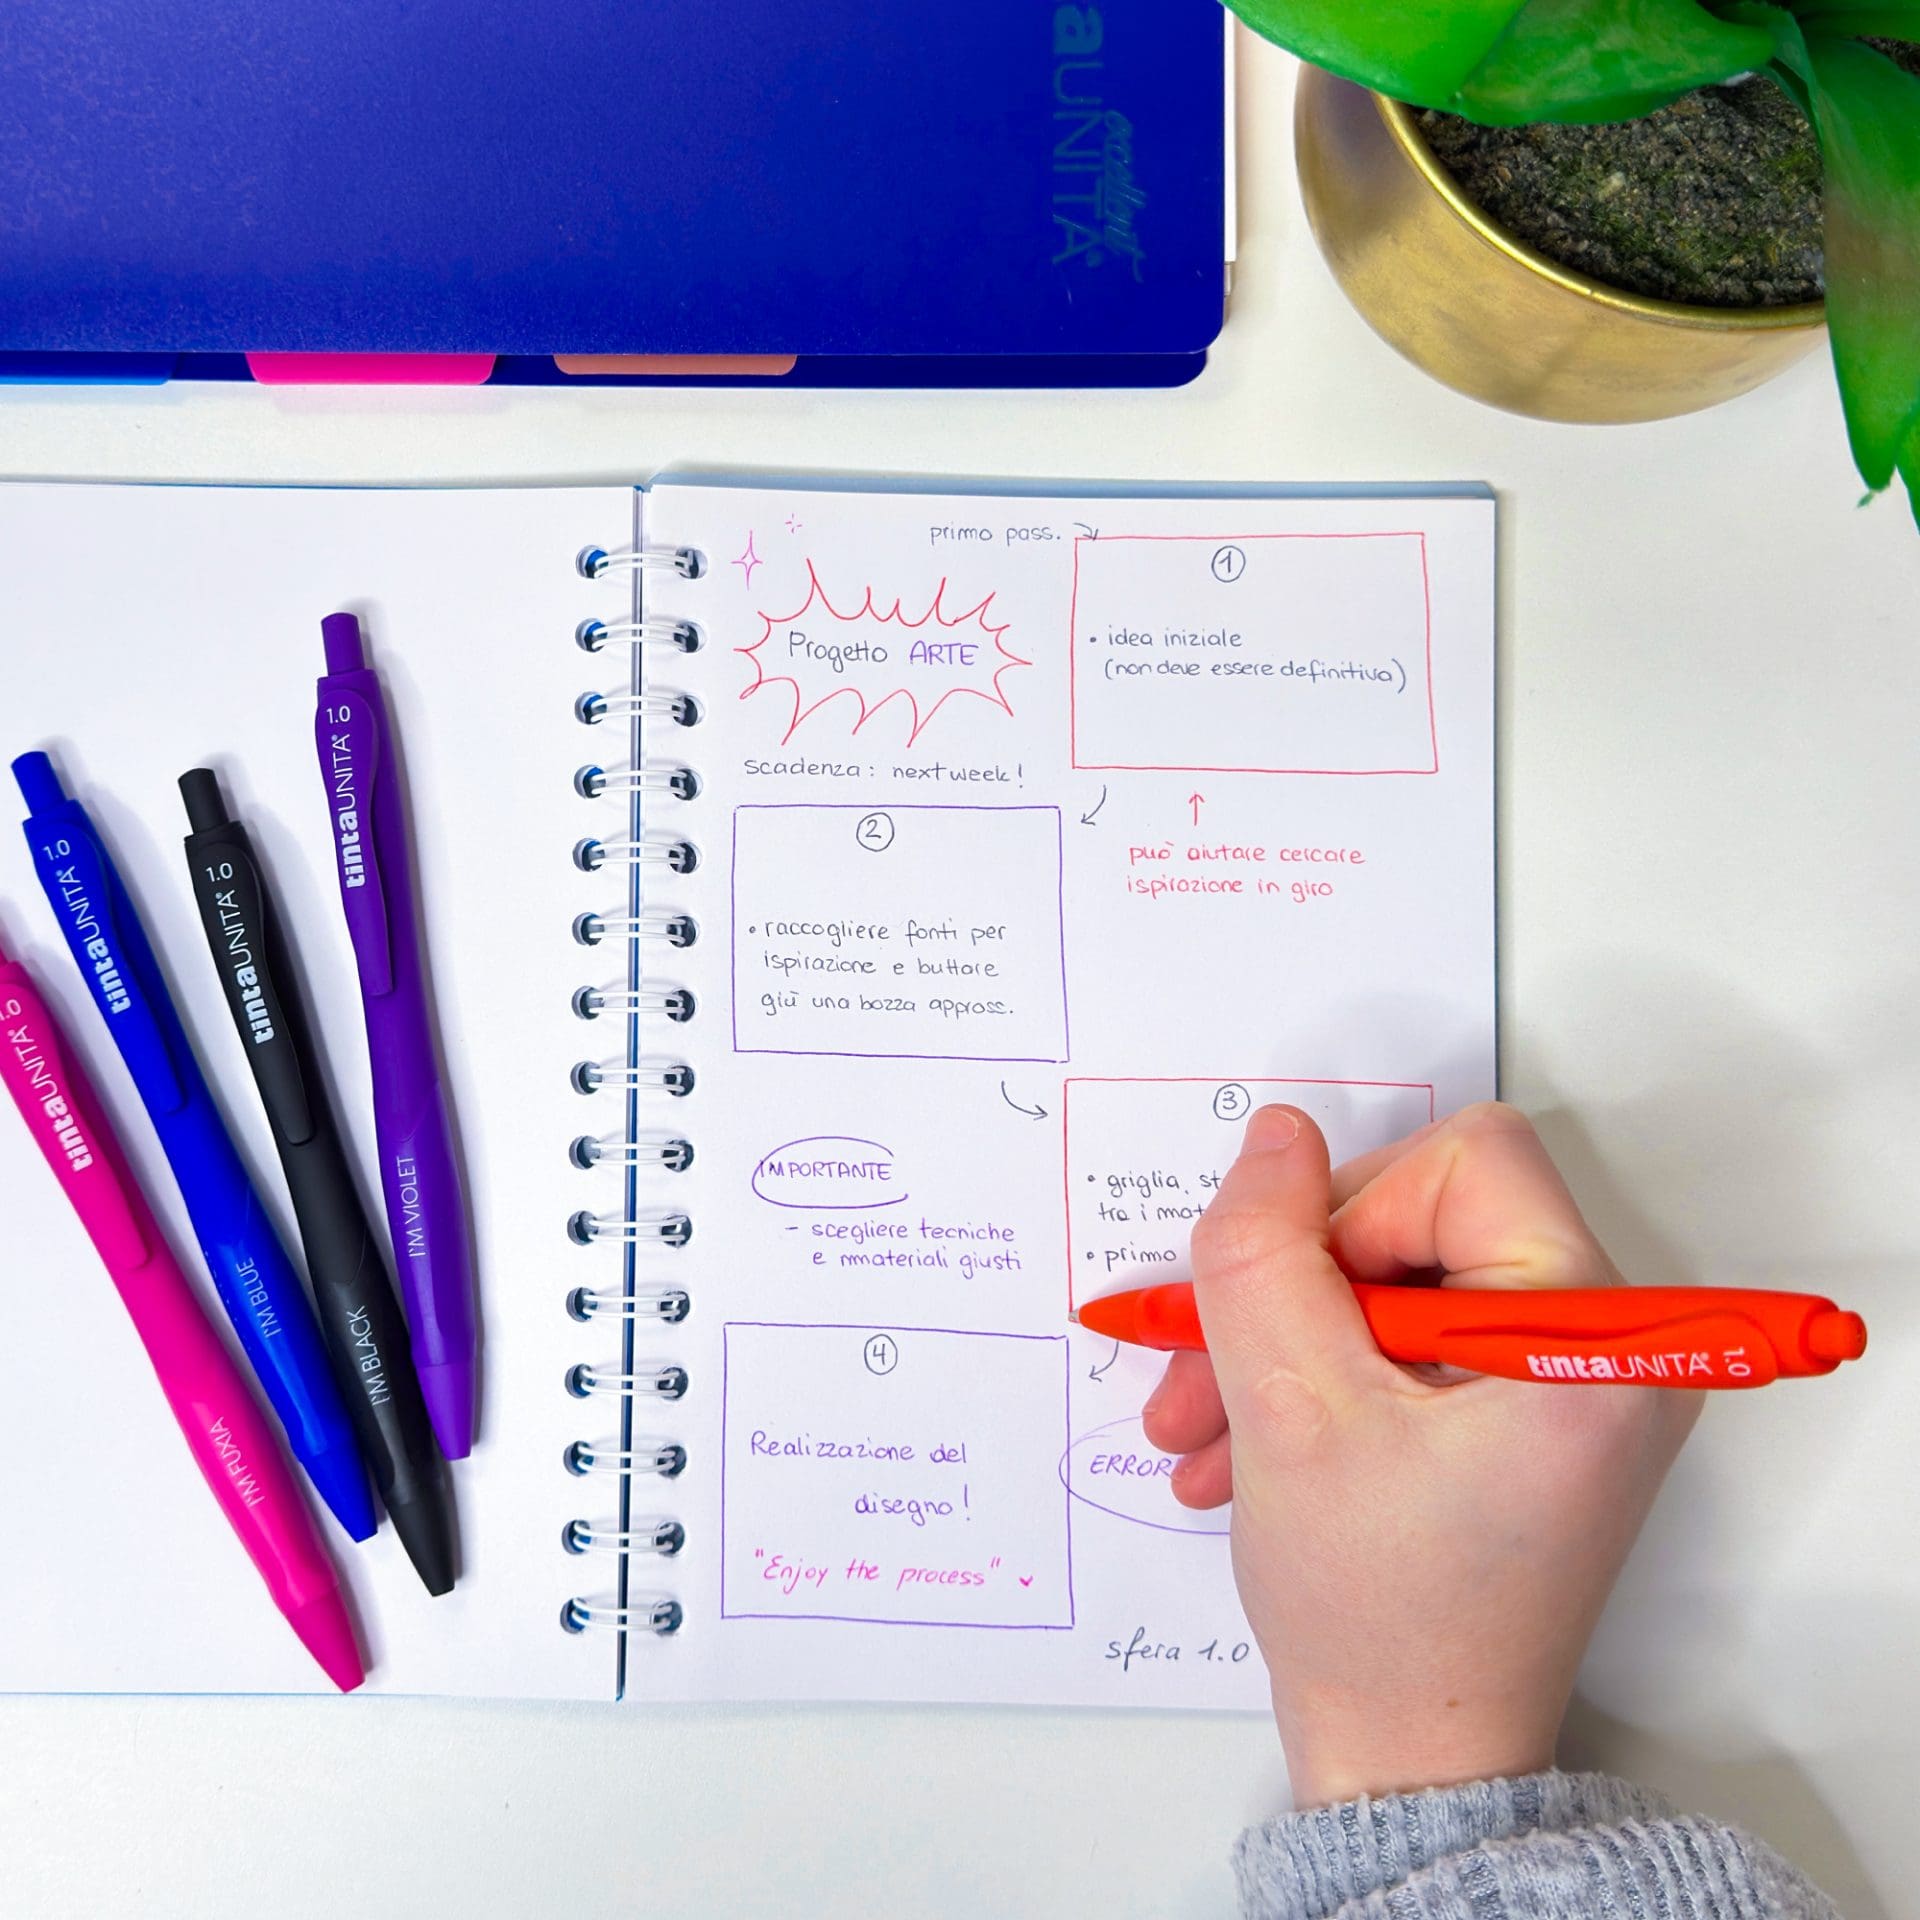 aUNITA
excellent
primo pass.
1
• idea iniziale
(non deve essere definitiva)
Progetto ARTE
scadenza: next week!
può aiutare cercare
ispirazione in giro
2
• raccogliere fonti per
ispirazione e buttare
giù una bozza appross.
3
• griglia, st
tra i mat
• primo
IMPORTANTE
- scegliere tecniche
e mmateriali giusti
4
Realizzazione del
disegno!
"Enjoy the process"
ERROR
sfera 1.0
1.0
tintaUNITA
I'M FUXIA
1.0
tintaUNITA
I'M BLUE
1.0
tintaUNITA
I'M BLACK
1.0
tintaUNITA
I'M VIOLET
tintaUNITA 1.0